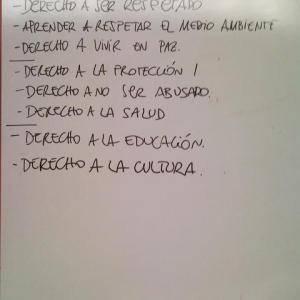 - DERECHO A SER RESPETADO
- APRENDER A RESPETAR EL MEDIO AMBIENTE
- DERECHO A VIVIR EN PAZ.
- DERECHO A LA PROTECCIÓN /
- DERECHO A NO SER ABUSADO.
- DERECHO A LA SALUD
- DERECHO A LA EDUCACIÓN.
- DERECHO A LA CULTURA.